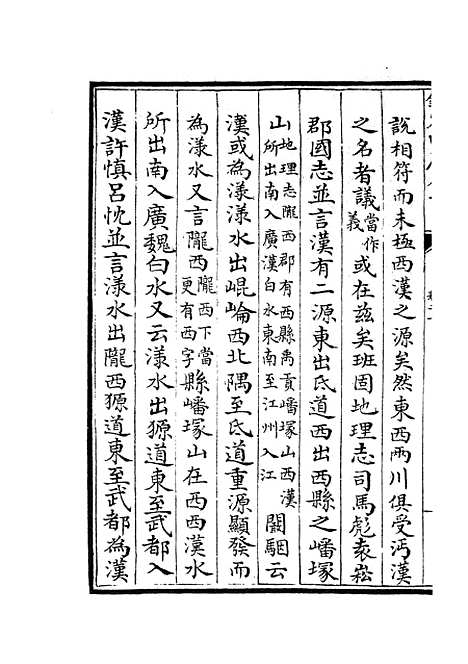 說相符而未極西漢之源矣然東西兩川俱受沔漢
之名者議當作義或在茲矣班固地理志司馬彪袁崧
郡國志並言漢有二源東出氐道西出西縣之嶓塚
山地理志隴西郡有西縣禹貢嶓塚山西漢所出南入廣漢白水東南至江州入江闞駰云
漢或為漾漾水出崐崘西北隅至氐道重源顯發而
為漾水又言隴西隴西下當更有西字縣嶓塚山在西西漢水
所出南入廣魏白水又云漾水出獂道東至武都入
漢許慎呂忱並言漾水出隴西獂道東至武都為漢